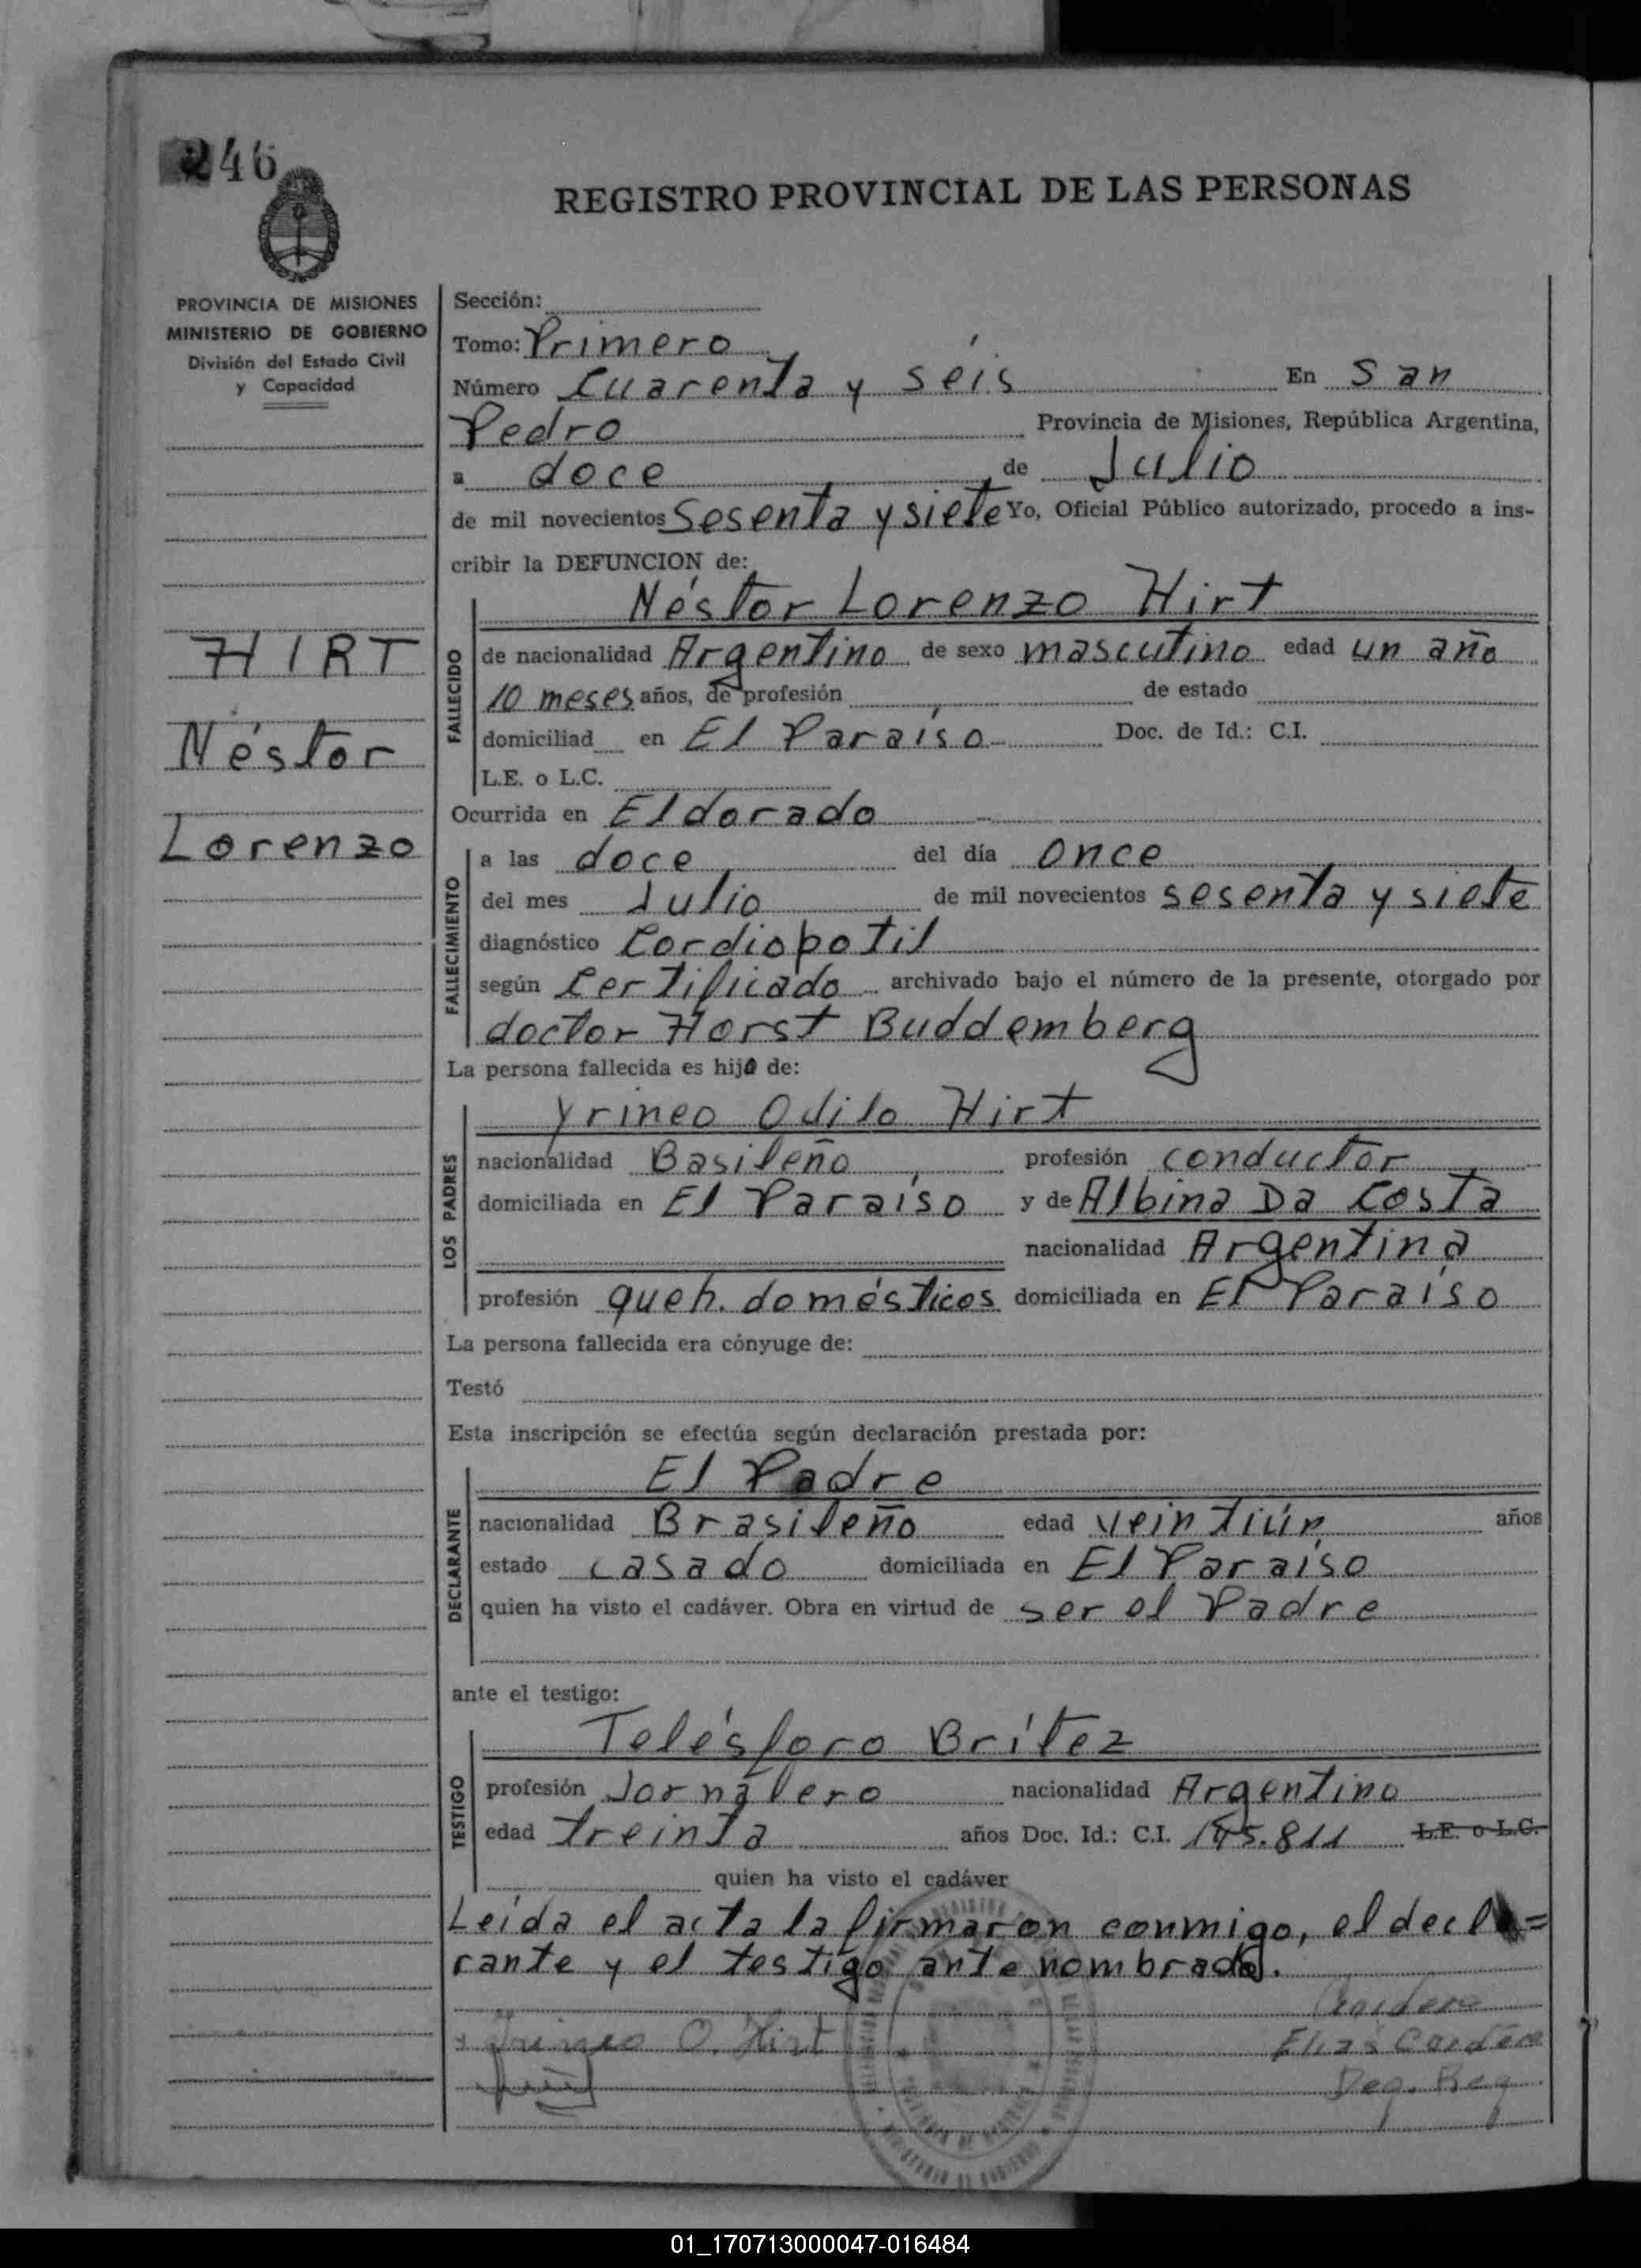 246
REGISTRO PROVINCIAL DE LAS PERSONAS
PROVINCIA DE MISIONES
MINISTERIO DE GOBIERNO
División del Estado Civil
y Capacidad
HIRT
Néstor
Lorenzo
Sección:
Tomo: Primero
Número Cuarenta y séis En San
Pedro Provincia de Misiones, República Argentina,
a doce de Julio
de mil novecientos Sesenta y siete Yo, Oficial Público autorizado, procedo a ins-
cribir la DEFUNCION de:
Néstor Lorenzo Hirt
FALLECIDO
de nacionalidad Argentino de sexo masculino edad un año
10 meses años, de profesión de estado
domiciliad en El Paraíso Doc. de Id.: C.I.
L.E. o L.C.
Ocurrida en Eldorado
FALLECIMIENTO
a las doce del día once
del mes Julio de mil novecientos sesenta y siete
diagnóstico
según Certificado archivado bajo el número de la presente, otorgado por
doctor Horst Buddemberg
La persona fallecida es hijo de:
LOS PADRES
Yrineo Odilo Hirt
nacionalidad Basileño profesión conductor
domiciliada en El Paraíso y de Albina Da Costa
nacionalidad Argentina
profesión queh. domésticos domiciliada en El Paraíso
La persona fallecida era cónyuge de:
Testó
Esta inscripción se efectúa según declaración prestada por:
DECLARANTE
El Padre
nacionalidad Brasileño edad veintiún años
estado casado domiciliada en El Paraíso
quien ha visto el cadáver. Obra en virtud de ser el Padre
ante el testigo:
TESTIGO
Telésforo Brítez
profesión Jornalero nacionalidad Argentino
edad treinta años Doc. Id.: C.I. 145.811 L.E. o L.C.
quien ha visto el cadáver
Leída el acta la firmaron conmigo, el decla=
rante y el testigo ante nombrado.
Yrineo O. Hirt
Elias
Deg. Reg
01_170713000047-016484